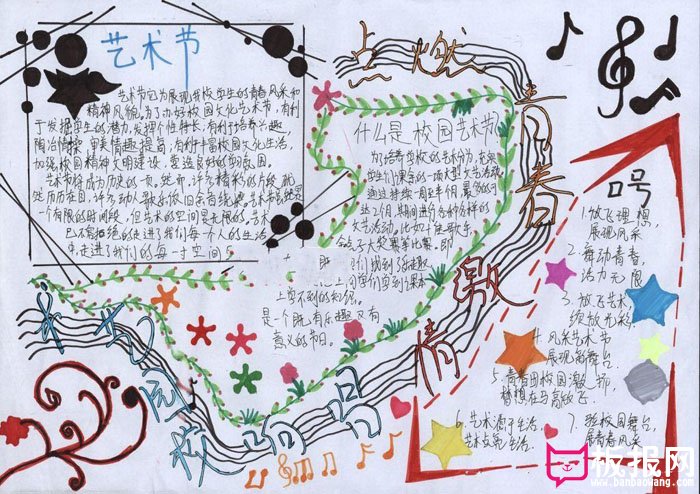 艺术节
艺术节它为展现我校学生的青春风采和
精神风貌,为了办好校园文化艺术节,有利
于发掘学生的潜力,发挥个性特长,有利于培养兴趣,
陶冶情操,审美情趣提高,有利丰富校园文化生活,
加强校园精神文明建设,营造良好的氛围。
艺术节将成为历史的一页,然而,许多精彩的片段就
一个有限的时间段,但艺术的空间是无限的,艺术
已不容拒绝的走进了我们每一个人的生活
走进了我们的每一寸空间
点燃青春激情
什么是校园艺术节
为了培养学校的艺术分为,充实
学生们课余的一项大型文艺活动
通过持续一周至半个月
过2个月,期间进行各种各样的
文艺活动,比如十佳歌手,
上学不到的知识。
是一个既有乐趣又有
意义的节日。
口号
1、放飞理想,
展现风采
2、舞动青春,
活力无限
3、放飞艺术
绽放光彩
4、风采艺术节
展现新舞台
5、青春因校园激扬
梦想在马高放飞
6、艺术源于生活,
艺术点亮生活
7、验校园舞台,
展青春风采
板报网
www.banbaowang.com